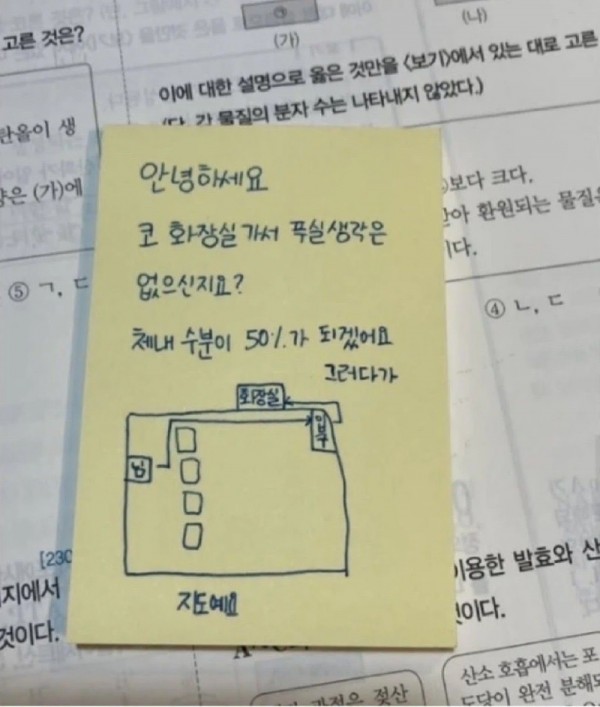 고른 것은?
(가)
(나)
이에 대한 설명으로 옳은 것만을 <보기>에서 있는 대로 고른
(단, 각 물질의 분자 수는 나타내지 않았다.)
탄올이 생
양은 (가)에
보다 크다.
아 환원되는 물질은
이다.
⑤ ㄱ, ㄷ
④ ㄴ, ㄷ
안녕하세요
코 화장실가서 푸실생각은
없으신지요?
체내 수분이 50%가 되겠어요
그러다가
화장실
입구
님
지도예요
[230
지에서
것이다.
이용한 발효와 산
것이다.
과정은 젖산
산소 호흡에서는 포
도당이 완전 분해되